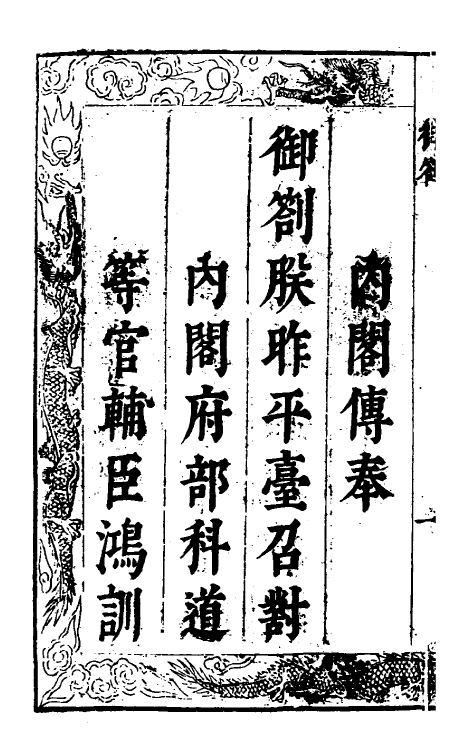 內閣傳奉
御劄朕昨平臺召對
內閣府部科道
等官輔臣鴻訓
御劄
一